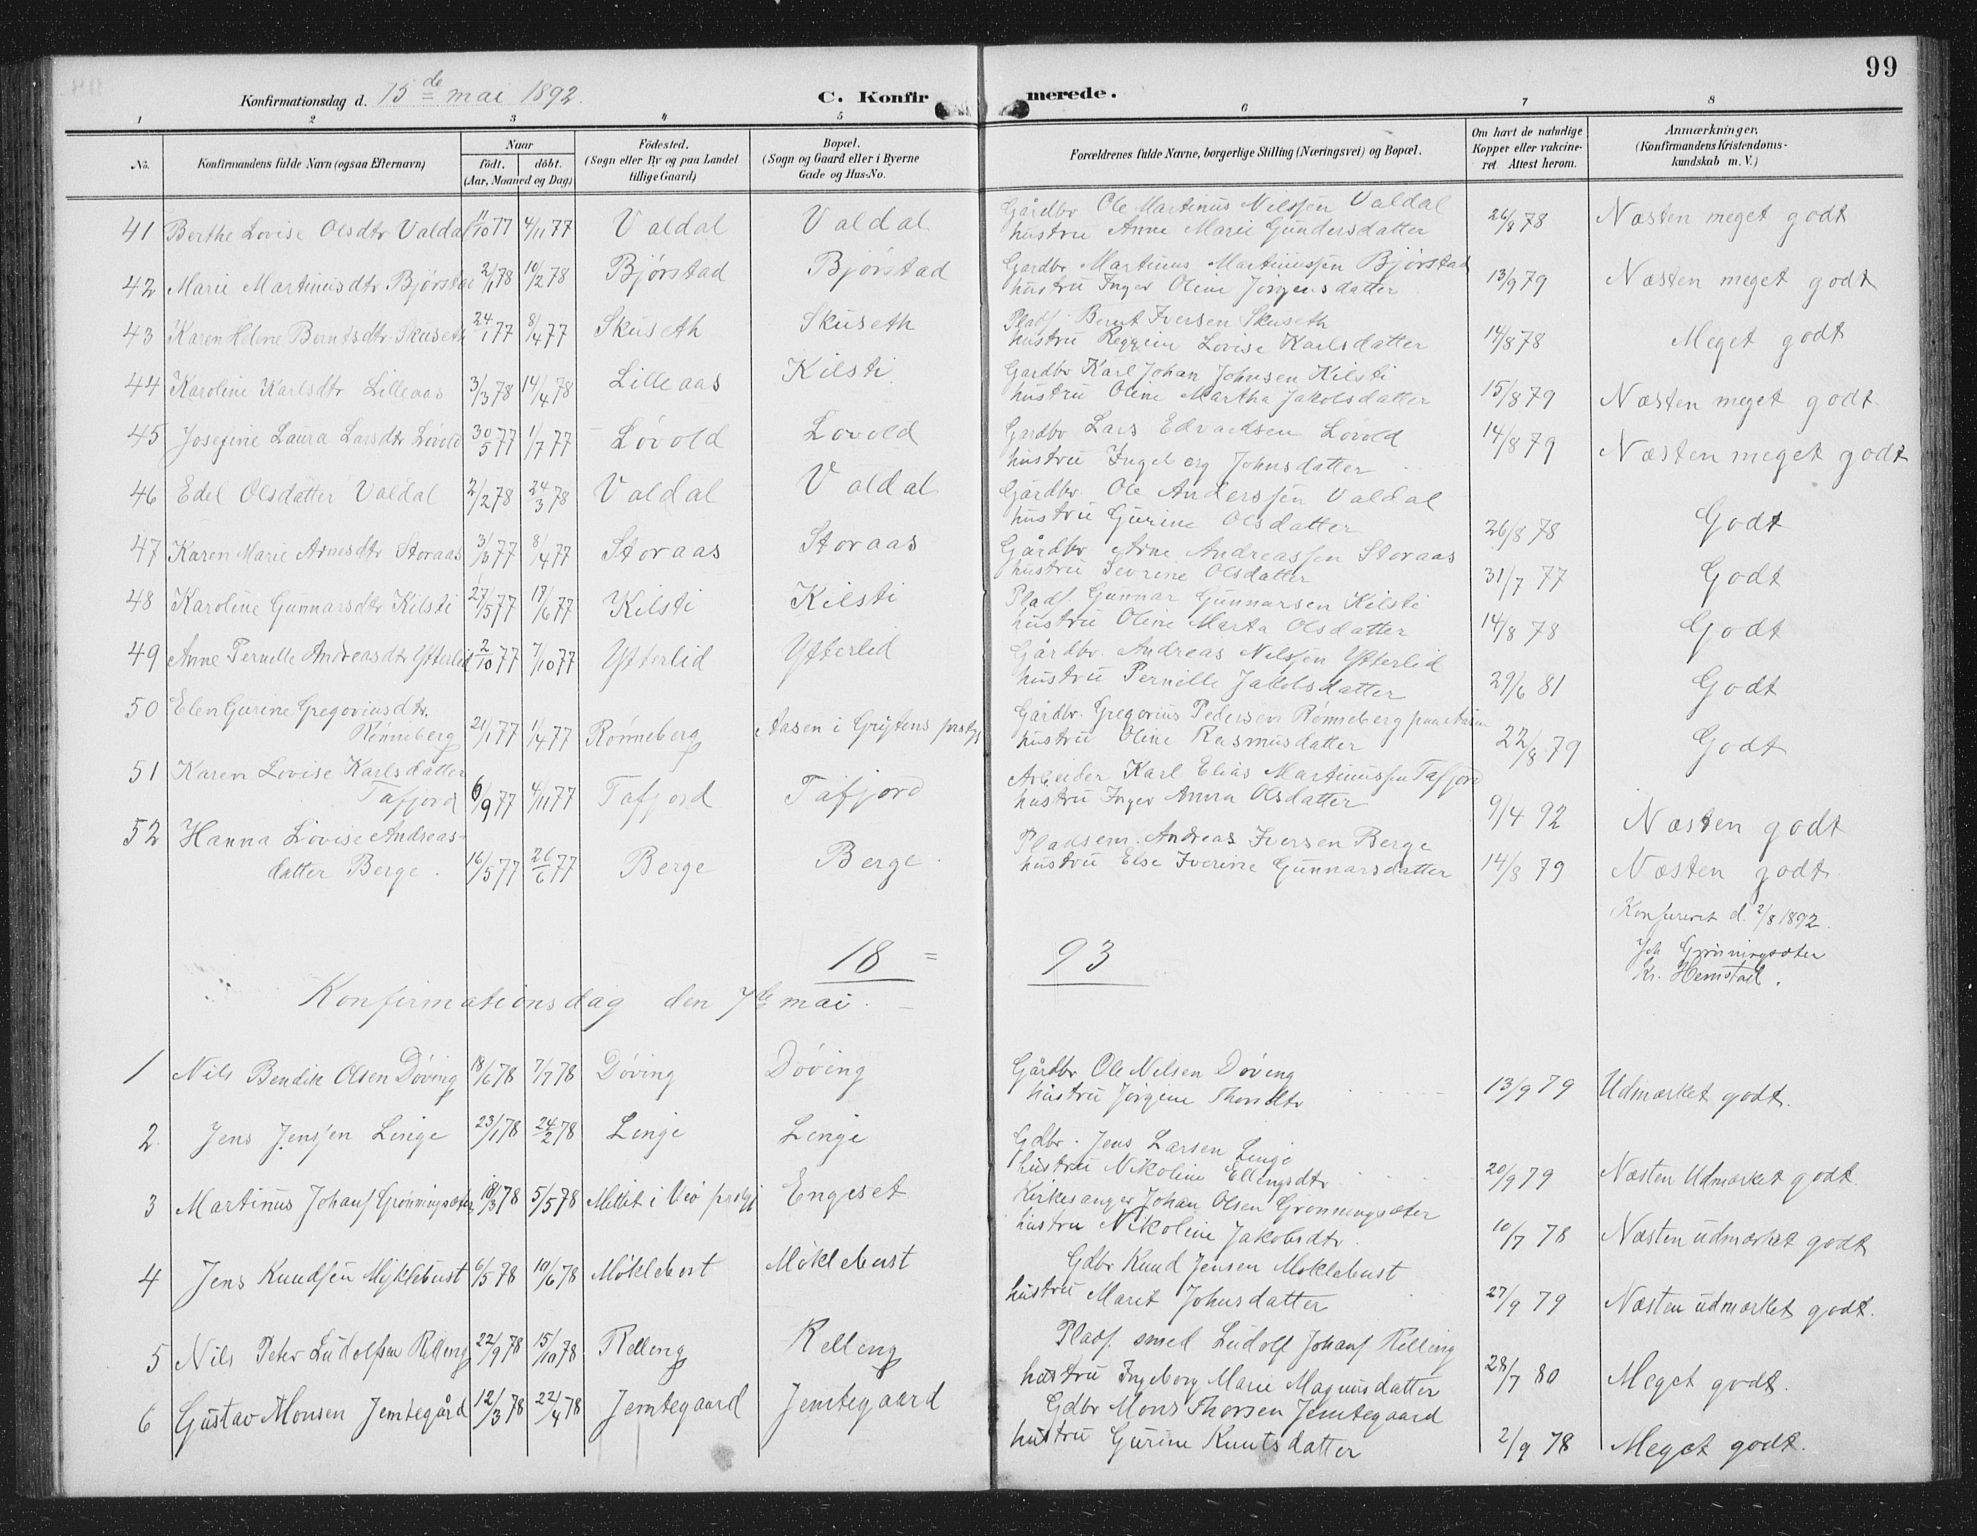 99
Konfirmationsdag d. 15de mai 1892. C. Konfirmerede.
1 2 3 4 5 6 7 8
No. Konfirmandens fulde Navn (ogsaa Efternavn) Naar født. døbt. (Aar, Maaned og Dag) Fødested. (Sogn eller By og paa Landet tillige Gaard) Bopæl. (Sogn og Gaard eller i Byerne Gade og Hus-No. Forældrenes fulde Navne, borgerlige Stilling (Næringsvei) og Bopæl. Om havt de naturlige Kopper eller vakcineret Attest herom. Anmærkninger. (Konfirmandens Kristendomskundskab m. V.)
41 Berthe Lovise Olsdtr Valdal 11/10 77 4/11 77 Valdal Valdal Gårdbr Ole Martinus Nilssen Valdal 26/8 78 Næsten meget godt
hustru Anne Marie Gundersdatter
42 Marie Martinusdtr Bjørstad 2/1 78 10/2 78 Bjørstad Bjørstad Gardbr Martinus Martinussen Bjørstad 13/9 79 Næsten meget godt
hustru Inger Oline Jørgensdatter
43 Karen Heline Berntsdtr Skuseth 24/1 77 8/4 77 Skuseth Skuseth Pladf. Bernt Iversen Skuseth 14/8 78 Meget godt
hustru Reggine Lovise Karlsdatter
44 Karoline Karlsdtr Lilleaas 3/3 78 14/4 78 Lilleaas Kilsti Gardbr Karl Johan Johnsen Kilsti 15/8 79 Næsten meget godt
hustru Oline Martha Jakobsdatter
45 Josefine Laura Larsdtr Løvold 30/5 77 1/7 77 Løvold Lovold Gardbr Lars Edvardsen Løvold 14/8 79 Næsten meget godt
hustru Ingeborg Johnsdatter
46 Edel Olsdatter Valdal 2/2 78 24/3 78 Valdal Valdal Gårdbr. Ole Anderssen Valdal 26/8 78 Godt
hustru Gurine Olsdatter
47 Karen Marie Arnesdtr Storaas 3/3 77 8/4 77 Storaas Storaas Gårdbr Arne Andreassen Storaas 31/7 77 Godt
hustru Severine Olsdatter
48 Karoline Gunnarsdtr Kilsti 27/5 77 17/6 77 Kilsti Kilsti Pladf. Gunnar Gunnarsen Kilsti 14/8 78 Godt
hustru Oline Marta Olsdatter
49 Anne Pernille Andreasdtr Ytterlid 2/10 77 7/10 77 Ytterlid Ytterlid Gårdbr. Andreas Nilssen Ytterlid 29/6 81 Godt
hustru Pernille Jakobsdatter
50 Elen Gurine Gregoriusdtr. Rønneberg 21/1 77 1/4 77 Rønneberg Aasen i Grytens prstgj Gårdbr. Gregorius Pedersen Rønneberg paa Aasen 22/8 79 Godt
hustru Oline Rasmusdatter
51 Karen Lovise Karlsdatter Tafjord 6/9 77 4/11 77 Tafjord Tafjord Arbeider Karl Elias Martinussen Tafjord 9/4 92 Næsten godt
hustru Inger Anna Olsdatter
52 Hanna Lovise Andreasdatter Berge. 16/5 77 26/6 77 Berge Berge. Pladsem. Andreas Iversen Berge 14/8 79 Næsten godt
hustru Else Iverine Gunnarsdatter
Konfereret d. 2/8 1892.
Joh Grønningsæter
Kr. Hemstad.
18 = 93
Konfirmationsdag den 7de mai.
1 Nils Bendik Olsen Døving 18/6 78 7/7 78 Døving Døving Gårdbr Ole Nilsen Døving 13/9 79 Udmærket godt.
hustru Jørgine Thorsdtr
2 Jens Jenssen Linge 23/1 78 24/2 78 Linge Linge Gdbr. Jens Larsen Linge 20/9 79 Næsten Udmærket godt.
hustru Nikoline Ellingsdtr
3 Martinus Johans Grønningsæter 18/3 78 5/5 78 Mittet i Veø prstgj Engeset Kirkesanger Johan Olsen Grønningsæter 10/7 78 Næsten udmærket godt
hustru Nikoline Jakobsdtr.
4 Jens Knudsen Myklebust 6/5 78 10/6 78 Møklebost Møklebust Gdbr Knud Jensen Møklebust 27/9 79 Næsten udmærket godt.
hustru Marit Johnsdatter
5 Nils Peter Ludolfsen Relling 22/9 78 15/10 78 Relling Relling Pladf. smed Ludolf Johans Relling 28/7 80 Meget godt.
hustru Ingeborg Marie Magnusdatter
6 Gustav Monsen Jemtegård 12/3 78 22/4 78 Jemtegaard Jemtegaard Gdbr Mons Thorsen Jemtegaard 2/9 78 Meget godt.
hustru Gurine Knutsdatter